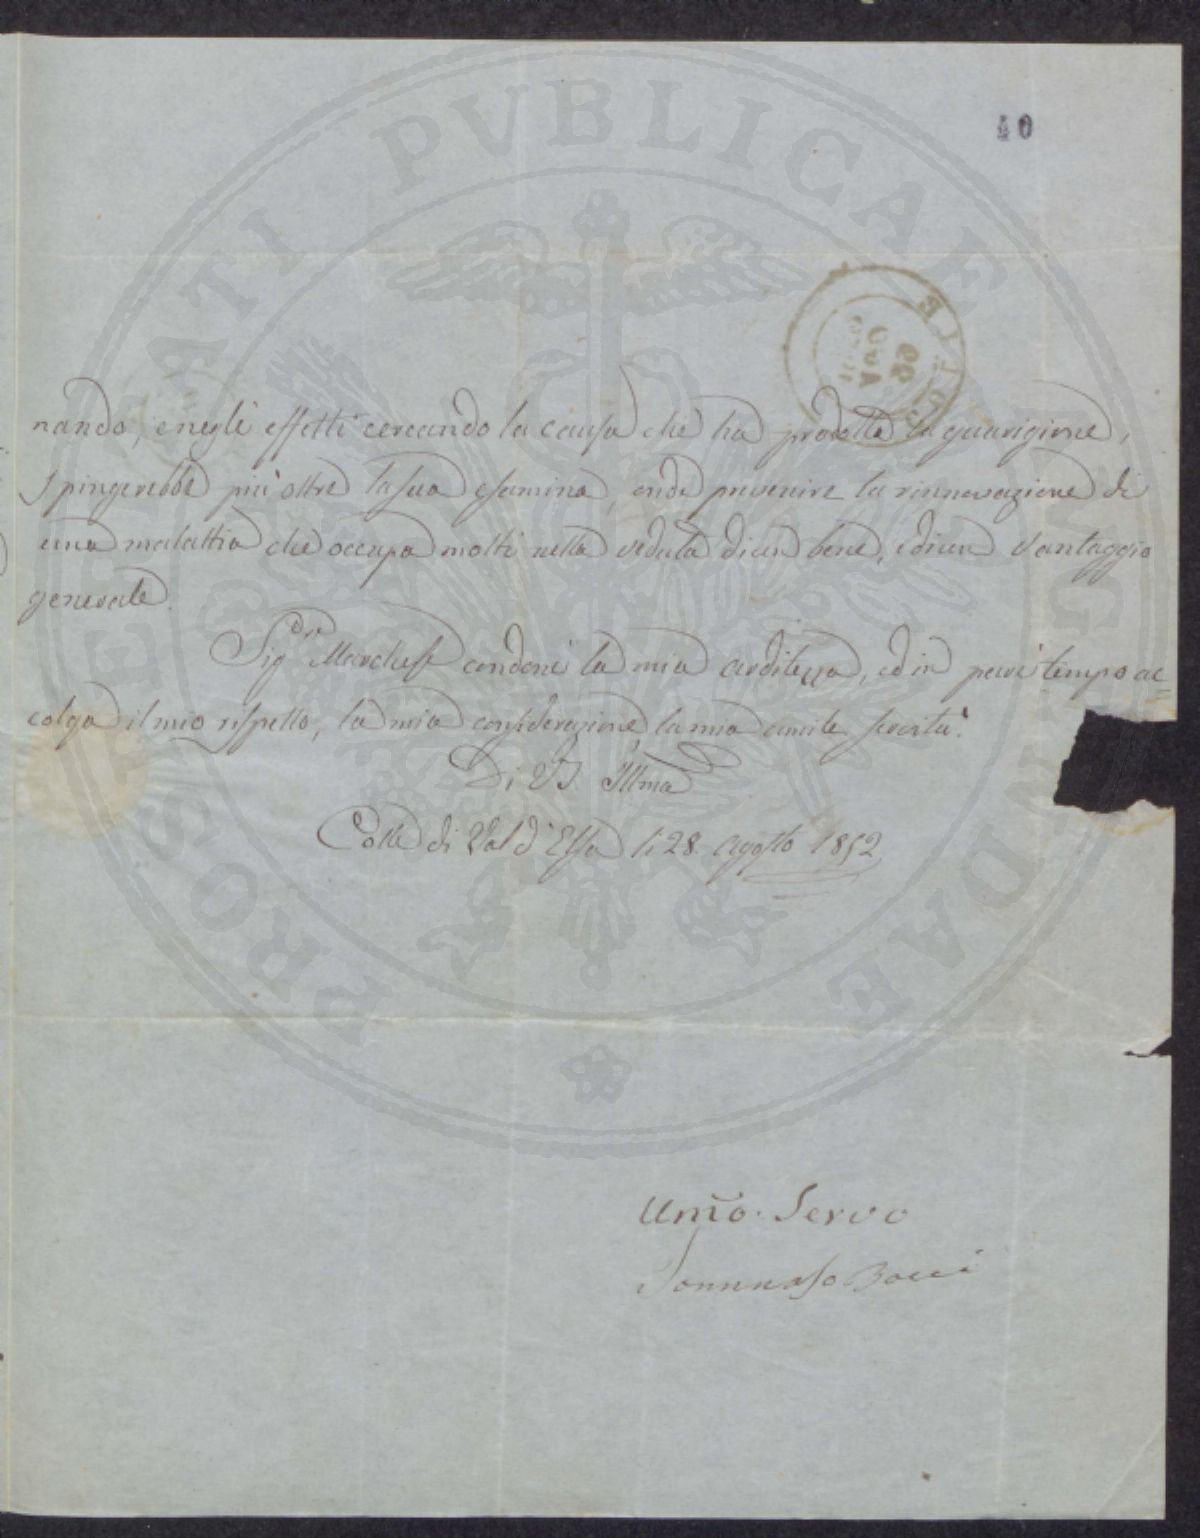 40
nando, e negli effetti cercando la causa che ha prodotta la guarigione,
spingerebbe più oltre la sua esamina, onde prevenire la rinnovazione di
una malattia che occupa molti nella veduta di un bene, e di un vantaggio
generale.
Sigr Marchese condoni la mia arditezza, ed in pari tempo ac=
colga il mio rispetto, la mia considerazione, la mia umile servitù.
Di VS. Illma
Colle di Val d'Elsa li 28. Agosto 1852
Umo. Servo
Tommaso Bocci
PROSPERITATI PVBLICAE AVGENDAE